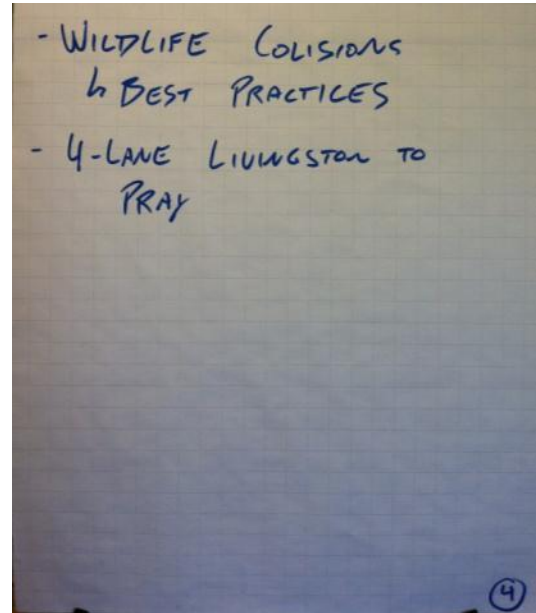 - WILDLIFE COLISIONS
↳ BEST PRACTICES
- 4-LANE LIVINGSTON TO
PRAY
4